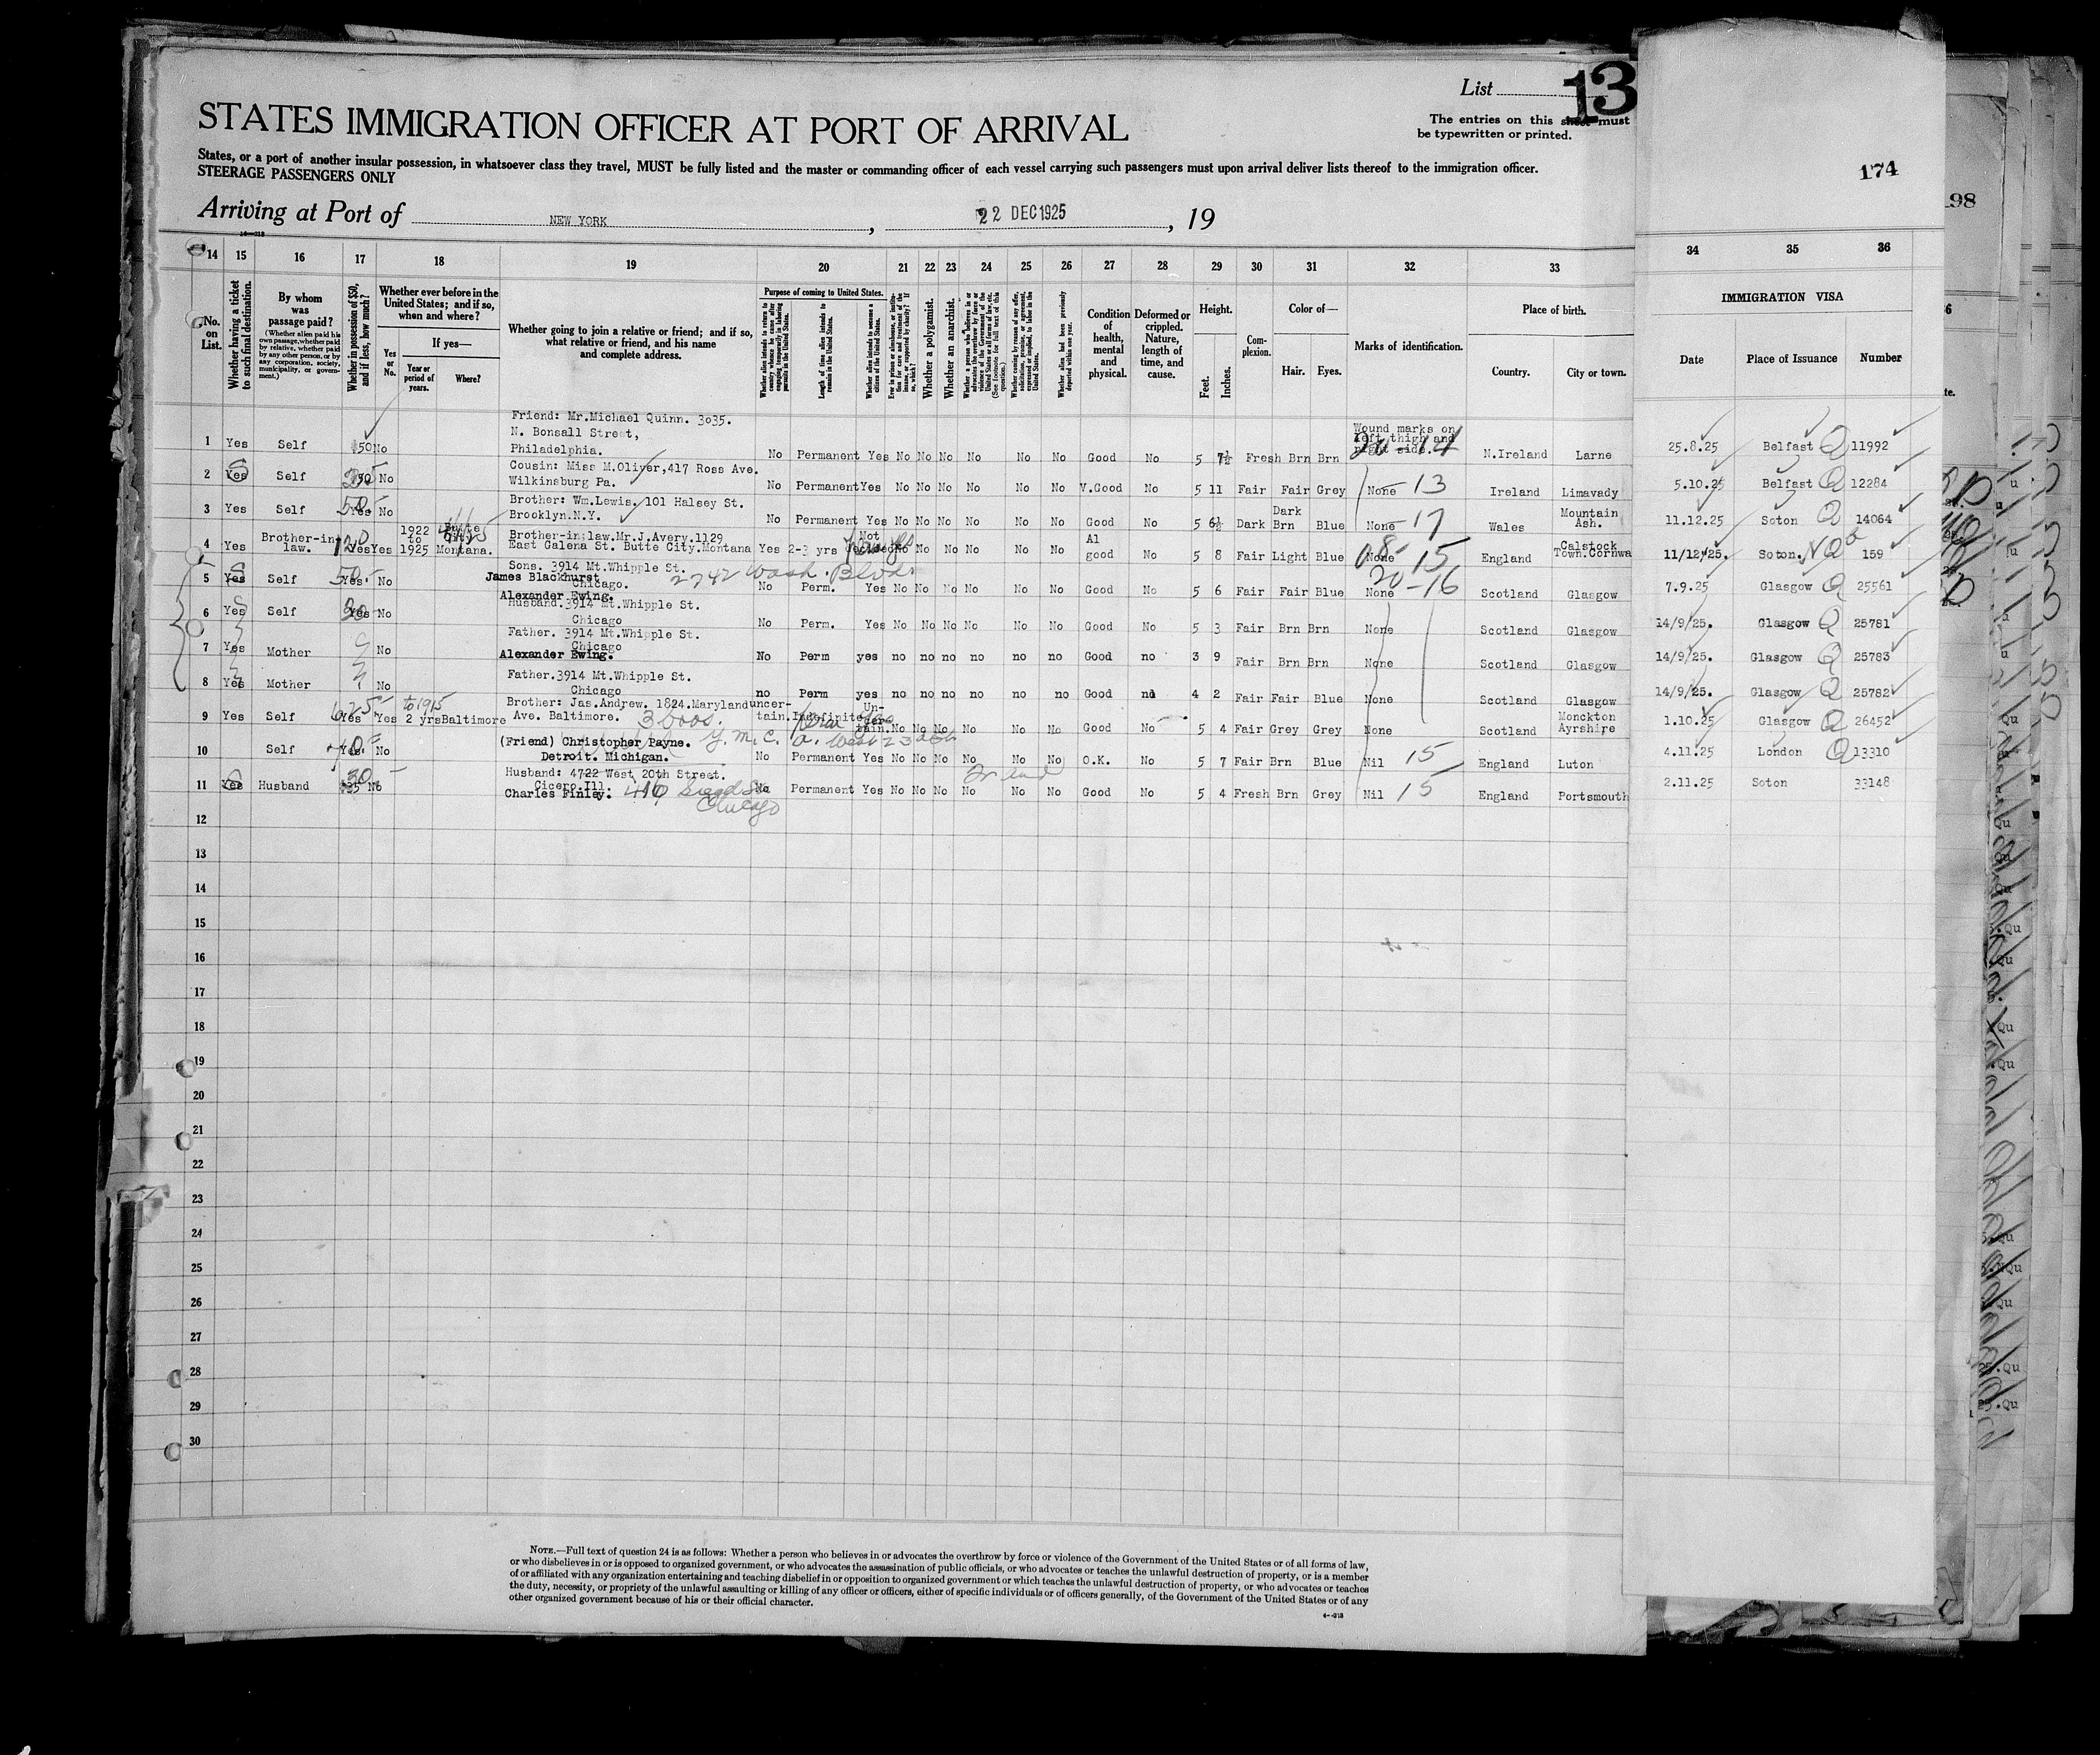 List 13
STATES IMMIGRATION OFFICER AT PORT OF ARRIVAL
The entries on this sheet must
be typewritten or printed.
States, or a port of another insular possession, in whatsoever class they travel, MUST be fully listed and the master or commanding officer of each vessel carrying such passengers must upon arrival deliver lists thereof to the immigration officer.
STEERAGE PASSENGERS ONLY
174
98
Arriving at Port of NEW YORK, 22 DEC 1925, 19
14 15 16 17 18 19 20 21 22 23 24 25 26 27 28 29 30 31 32 33 34 35 36
No. on List.
Whether having a ticket to such final destination.
By whom was passage paid?
(Whether alien paid his own passage, whether paid by relative, whether paid by any other person, or by any corporation, society, municipality, or government.)
Whether in possession of $50, and if less, how much?
Whether ever before in the United States; and if so, when and where?
If yes—
Yes or No.
Year or period of years.
Where?
Whether going to join a relative or friend; and if so, what relative or friend, and his name and complete address.
Purpose of coming to United States.
Whether alien intends to return to country whence he came after engaging temporarily in laboring pursuits in the United States.
Length of time alien intends to remain in the United States.
Whether alien intends to become a citizen of the United States.
Ever in prison or almshouse, or institution for care and treatment of the insane, or supported by charity? If so, which?
Whether a polygamist.
Whether an anarchist.
Whether coming by reason of any offer, solicitation, promise, or agreement, expressed or implied, to labor in the United States.
Whether alien had been previously deported within one year.
Condition of health, mental and physical.
Deformed or crippled. Nature, length of time, and cause.
Height.
Feet. Inches.
Complexion.
Color of—
Hair. Eyes.
Marks of identification.
Place of birth.
Country. City or town.
IMMIGRATION VISA
Date Place of Issuance Number
1 Yes Self 50 No Friend: Mr.Michael Quinn. 3035. N. Bonsall Street, Philadelphia. No Permanent Yes No No No No No No Good No 5 7½ Fresh Brn Brn Wound marks on left thigh and right side. 14 N.Ireland Larne 25.8.25 Belfast Q 11992
2 Yes Self No Cousin: Miss M.Oliver,417 Ross Ave. Wilkinsburg Pa. No Permanent Yes No No No No No No V.Good No 5 11 Fair Fair Grey None 13 Ireland Limavady 5.10.25 Belfast Q 12284
3 Yes Self Yes 50 No Brother: Wm.Lewis. 101 Halsey St. Brooklyn.N.Y. No Permanent Yes No No No No No No Good No 5 6½ Dark Dark Brn Blue None 17 Wales Mountain Ash. 11.12.25 Soton Q 14064
4 Yes Brother-in law. 120 Yes Yes 1922 to 1925 Butte City Montana. Brother-in-law.Mr.J.Avery.1129 East Galena St. Butte City.Montana Yes 2-3 yrs Not decided No No No No No No A1 good No 5 8 Fair Light Blue None 15 England Calstock Town.Cornwa 11/12/25. Soton. NQ 159
5 Yes Self Yes 50 No Sons. 3914 Mt.Whipple St. Chicago. James Blackhurst 2742 Wash. Blvd No Perm. Yes No No No No No No Good No 5 6 Fair Fair Blue None 20-16 Scotland Glasgow 7.9.25 Glasgow Q 25561
6 Yes Self Yes 20 No Alexander Ewing. Husband.3914 Mt.Whipple St. Chicago No Perm. Yes No No No No No No Good No 5 3 Fair Brn Brn None Scotland Glasgow 14/9/25. Glasgow Q 25781
7 Yes Mother No Father. 3914 Mt.Whipple St. Chicago Alexander Ewing. No Perm yes no no no no no no Good no 3 9 Fair Brn Brn None Scotland Glasgow 14/9/25. Glasgow Q 25783
8 Yes Mother No Father.3914 Mt.Whipple St. Chicago no Perm yes no no no no no no Good no 4 2 Fair Fair Blue None Scotland Glasgow 14/9/25. Glasgow Q 25782
9 Yes Self Yes 625 Yes to 1915 2 yrs Baltimore Brother: Jas.Andrew. 1824.Maryland Ave. Baltimore. uncertain. Indefinite Uncertain. No No No No No No Good No 5 4 Fair Grey Grey None Scotland Monckton Ayrshire 1.10.25 Glasgow Q 26452
10 Self Yes No (Friend) Christopher Payne. Y.M.C.A. Detroit. Michigan. No Permanent Yes No No No No No No O.K. No 5 7 Fair Brn Blue Nil 15 England Luton 4.11.25 London Q 13310
11 Yes Husband $35 30 No Husband: 4722 West 20th Street. Cicero.Ill. Charles Finley. Chicago No Permanent Yes No No No No No No Good No 5 4 Fresh Brn Grey Nil 15 England Portsmouth 2.11.25 Soton 33148
12
13
14
15
16
17
18
19
20
21
22
23
24
25
26
27
28
29
30
NOTE.—Full text of question 24 is as follows: Whether a person who believes in or advocates the overthrow by force or violence of the Government of the United States or of all forms of law,
or who disbelieves in or is opposed to organized government, or who advocates the assassination of public officials, or who advocates or teaches the unlawful destruction of property, or is a member
of or affiliated with any organization entertaining and teaching disbelief in or opposition to organized government or which teaches the unlawful destruction of property, or who advocates or teaches
the duty, necessity, or propriety of the unlawful assaulting or killing of any officer or officers, either of specific individuals or of officers generally, of the Government of the United States or of any
other organized government because of his or their official character.